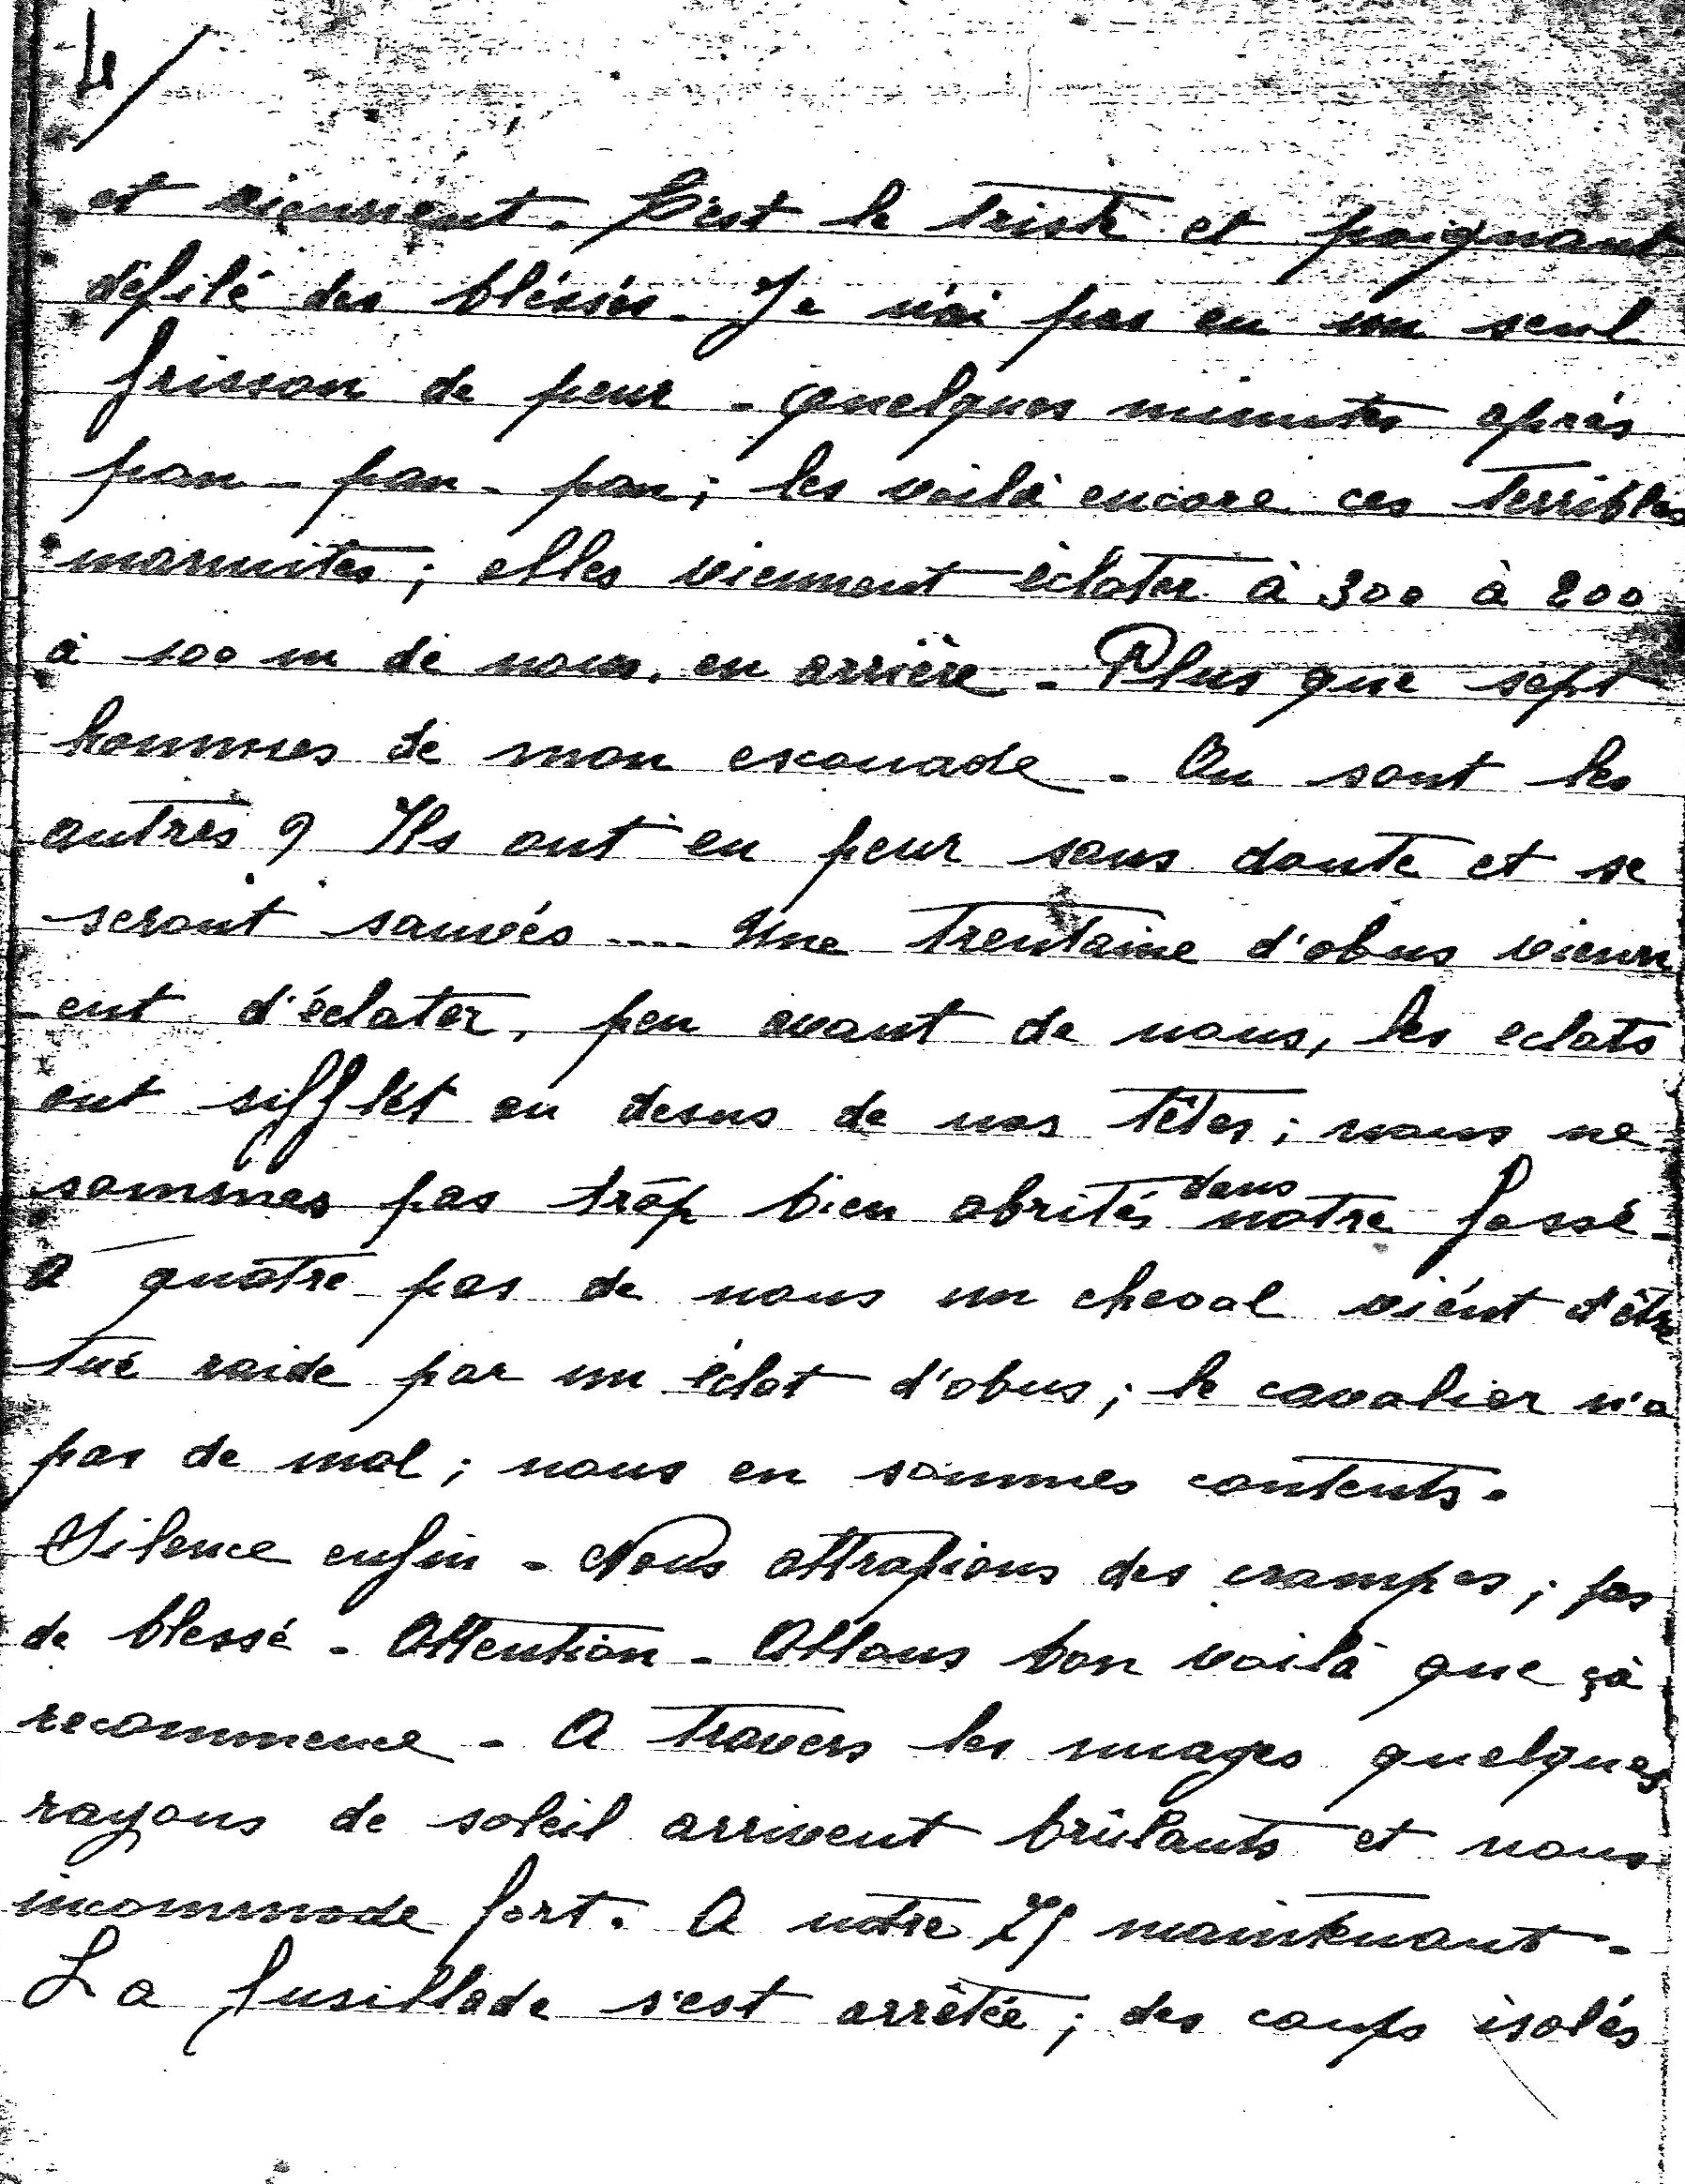 4/
et viennent. C'est le triste et poignant
défilé des bléssés. Je n'ai pas eu un seul
frisson de peur - quelques minutes après
pan - pan - pan; les voilà encore ces terribles
marmites; elles viennent éclater à 300 à 200
à 100 m de nous, en arrière - Plus que sept
hommes de mon escouade - Ou sont les
autres ? Ils ont eu peur sans doute et se
seront sauvés .... Une trentaine d'obus vienn
ent d'éclater, peu avant de nous, les eclats
ont sifflét au desus de nos têtes; nous ne
sommes pas trop bien abrités dans notre fossé -
A quatre pas de nous un cheval vient d'être
tué raide par un éclat d'obus; le cavalier n'a
pas de mal; nous en sommes contents.
Silence enfin - Nous attrapions des crampes; pas
de blessé - Attention - Allons bon voilà que çà
recommence - A travers les nuages quelques
rayons de soleil arrivent brûlants et nous
incommode fort. A notre 75 maintenant -
La fusillade s'est arrêtée; des coups isolés